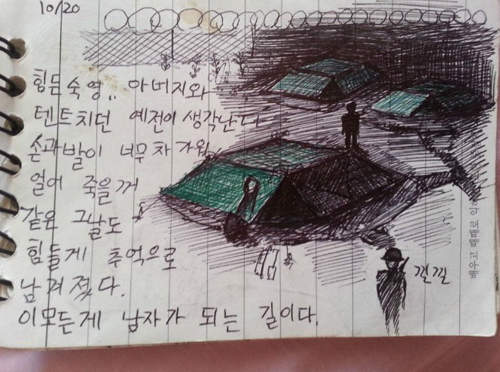 10/20
힘든숙영.. 아버지와
텐트치던 예전이 생각난다
손과발이 너무차가워
얼어 죽을꺼
같은 그날도
힘들게 추억으로
남겨졌다.
이모든게 남자가 되는 길이다.
낄낄